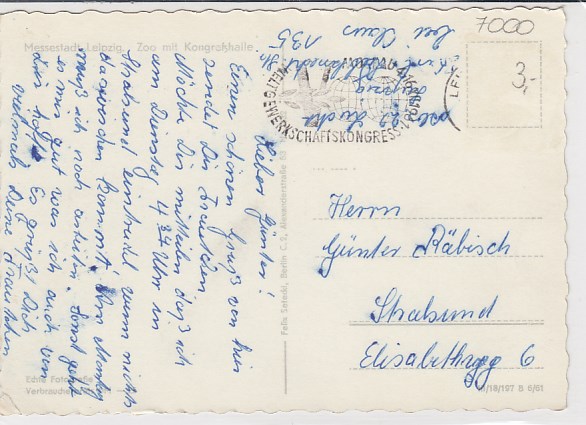 7000
3,-
Messestadt Leipzig. Zoo mit Kongreßhalle
bei Claus
135
WELTGEWERKSCHAFTSKONGRESS
Lieber Günter!
Einen schönen Gruß von hier
sendet Dir Frauchen
Möchte Dir mitteilen daß ich
am Dienstag 4 34 Uhr in
Stralsund eintreffe wenn nichts
dazwischen kommt. Am Montag
muß ich noch arbeiten. Sonst geht
es mir gut was ich auch von
Dir hoffe. Es grüßt Dich
vielmals Deine Frauchen
Felix Setecki, Berlin C 2, Alexanderstraße
Herrn
Günter Räbisch
Stralsund
Elisabethweg 6
Echte Fotografie
Verbraucher
18/197 B 6/61